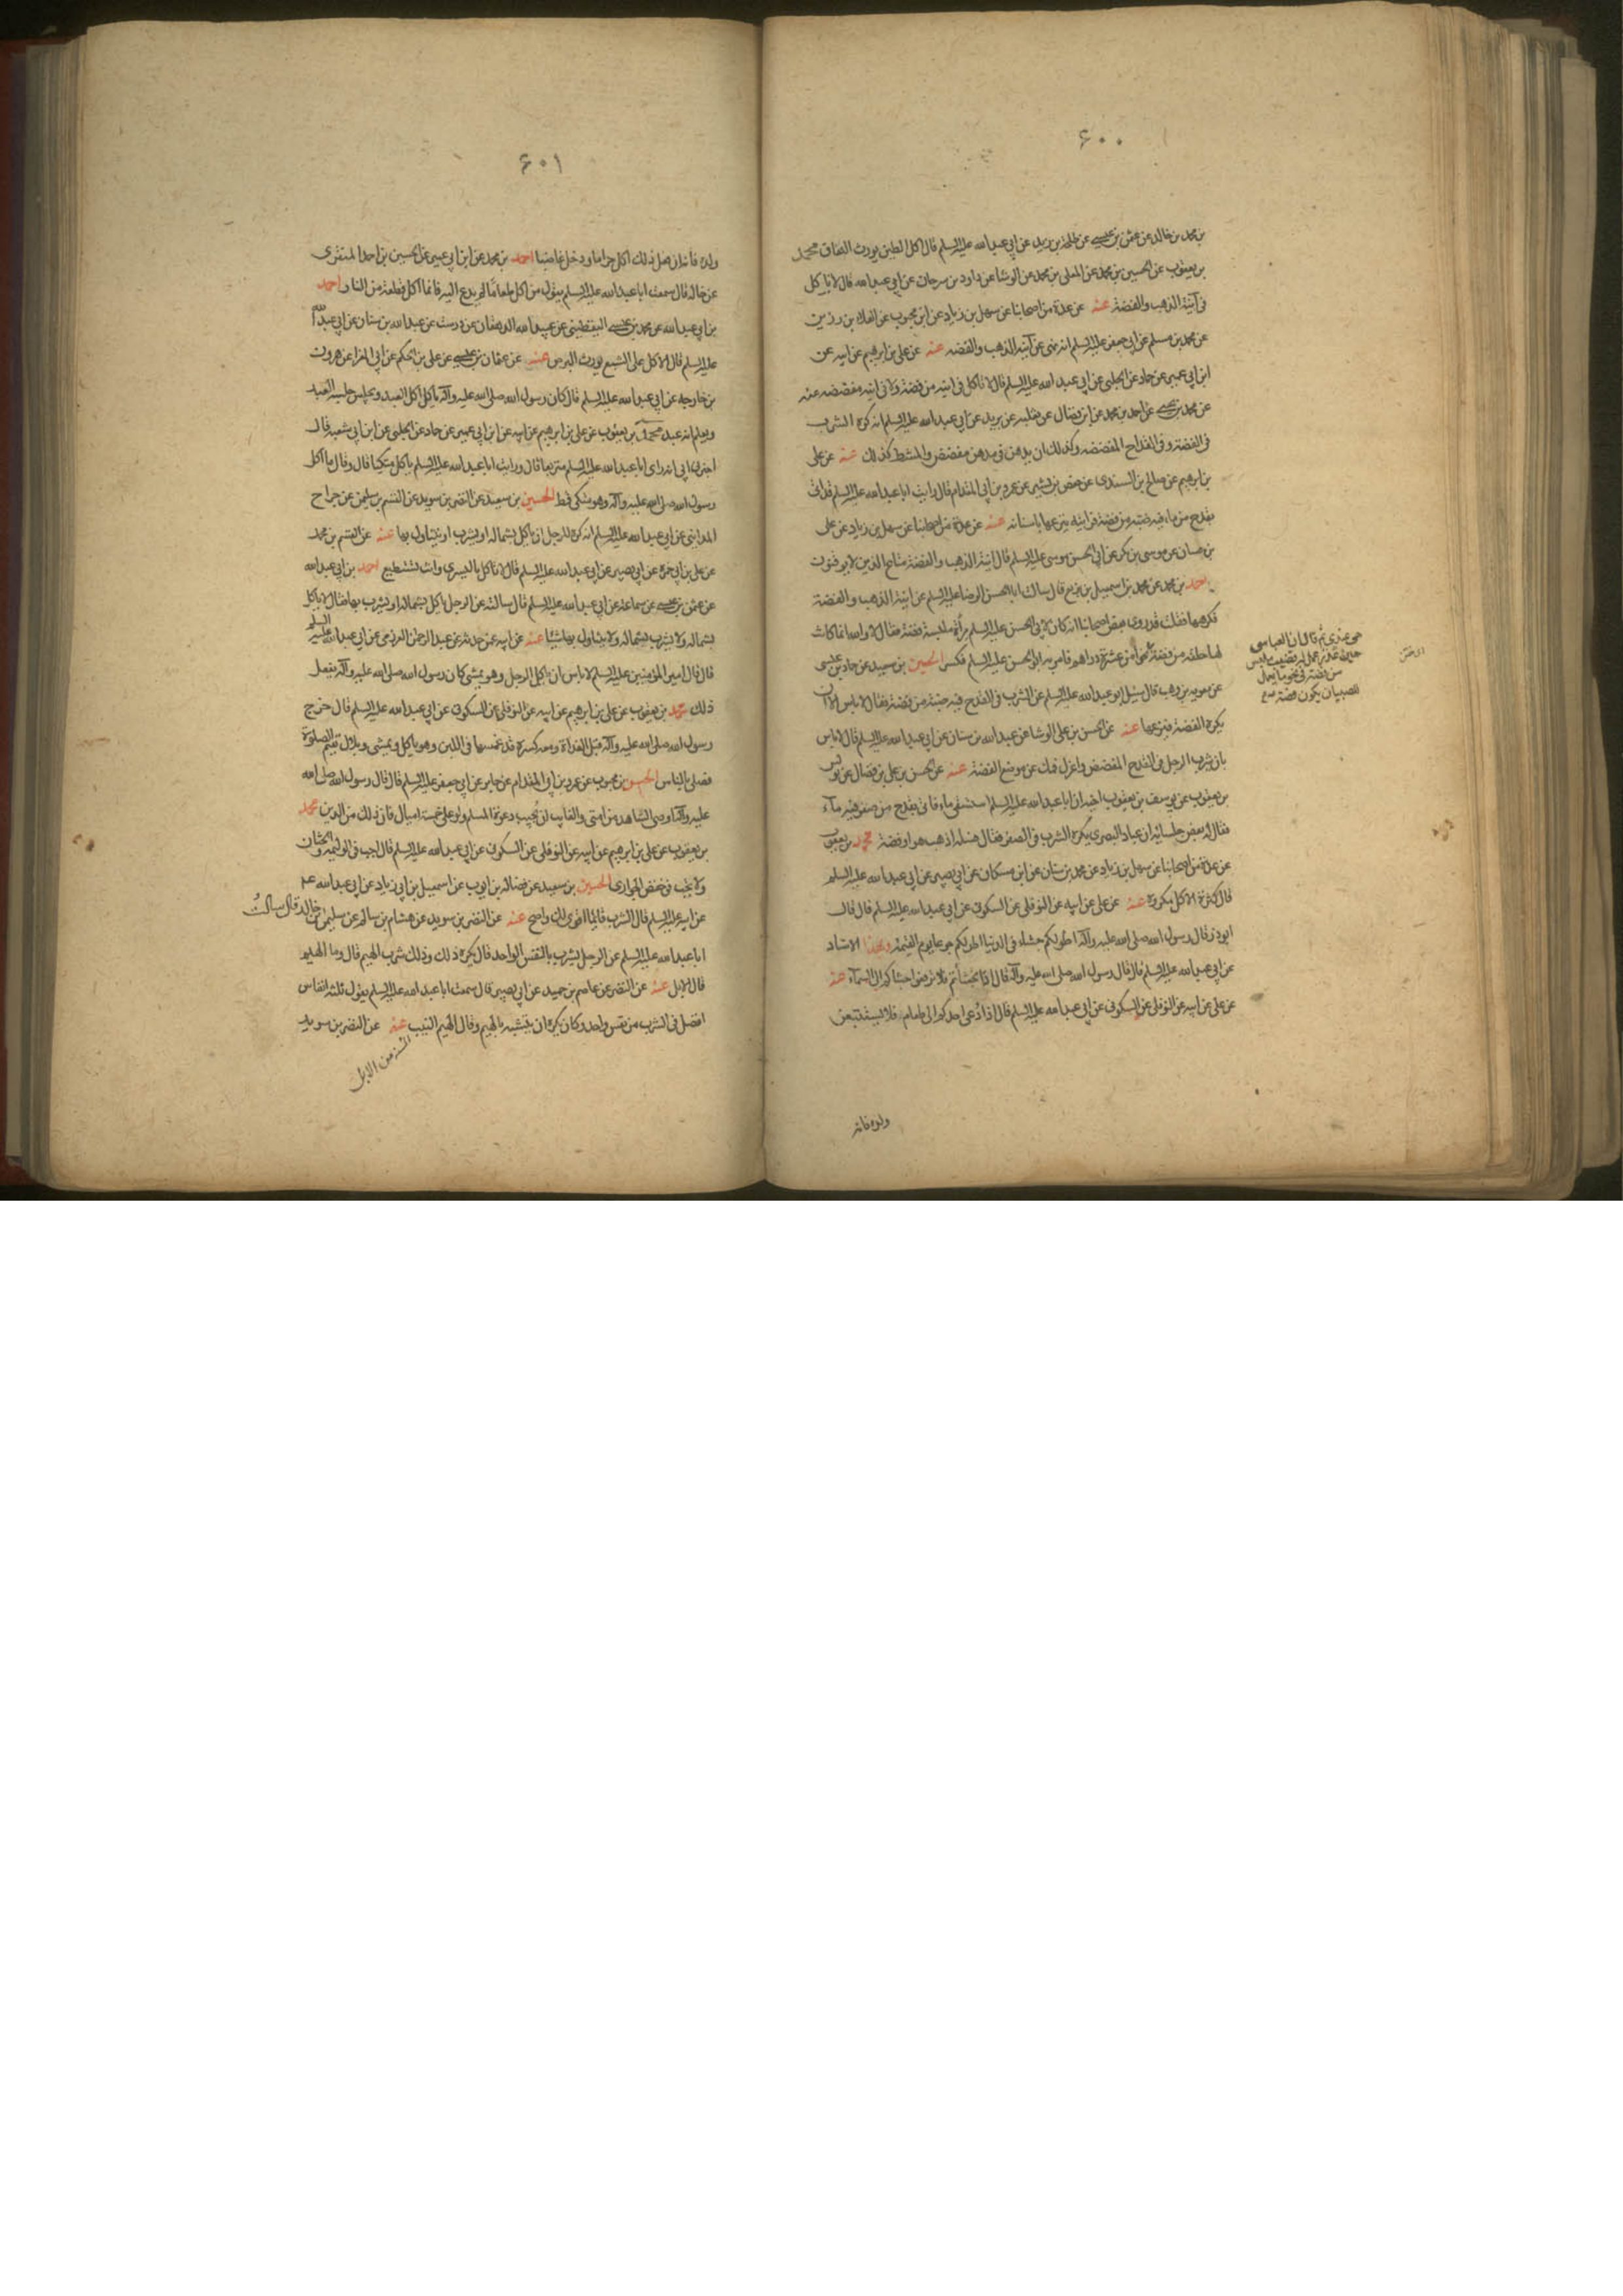 ۶۰۰
بن محمد بن خالد عن عثمن بن عيسى عن طلحة بن زيد عن ابي عبد الله عليه السلم قال اكل الطين يورث النفاق محمد
بن يعقوب عن الحسين بن محمد عن المعلى بن محمد عن الوشا عن داود بن سرحان عن ابي عبد الله قال لا تاكل
في آنية الذهب والفضة عنه عن عدة من اصحابنا عن سهل بن زياد عن ابن محبوب عن العلا بن رزين
عن محمد بن مسلم عن ابي جعفر عليه السلم انه نهى عن آنية الذهب والفضه عنه عن علي بن ابرهيم عن ابيه عن
ابن ابي عمير عن حماد عن الحلبي عن ابي عبد الله عليه السلم قال لا تاكل في انيه من فضة ولا في انيه مفضضه عنه
عن محمد بن يحيى عن احمد بن محمد عن ابن فضال عن ثعلبه عن بريد عن ابي عبد الله عليه السلم انه كره الشرب
في الفضة وفي القداح المفضضه وكذلك ان يدهن في مدهن مفضض والمشط كذلك عنه عن علي
بن ابرهيم عن صالح بن السندى عن جعفر بن بشير عن عمرو بن ابي المقدام قال رايت ابا عبد الله عليه السلم قد اتى
بقدح من ماء فيه ضبة من فضة فرايته ينزعها باسنانه عنه عن عدة من اصحابنا عن سهل بن زياد عن علي
بن حسان عن موسى بن بكر عن ابي الحسن موسى عليه السلم قال انية الذهب والفضة متاع الذين لا يوقنون
احمد بن محمد عن محمد بن اسمعيل بن بزيع قال سالت ابا الحسن الرضا عليه السلم عن انية الذهب والفضة
فكرههما فقلت قد روى بعض اصحابنا انه كان لابي الحسن عليه السلم مرآة ملبسة فضة فقال لا والله انما كانت
لها حلقه من فضة نحوا من عشرة دراهم فامر به ابو الحسن عليه السلم فكسر الحسين بن سعيد عن حماد بن عيسى
عن معويه بن وهب قال سئل ابو عبد الله عليه السلم عن الشرب في القدح فيه ضبة من فضة فقال لا باس الا ان
يكره الفضة فينزعها عنه عن الحسن بن علي الوشا عن عبد الله بن سنان عن ابي عبد الله عليه السلم قال لا باس
بان يشرب الرجل في القدح المفضض واعزل فمك عن موضع الفضة عنه عن الحسن بن علي بن فضال عن يونس
بن يعقوب عن يوسف بن يعقوب اخيه ان ابا عبد الله عليه السلم استسقى ماء فاتى بقدح من صفر فيه مآء
فقال له بعض جلسائه ان عباد البصرى يكره الشرب في الصفر فقال هسله اذهب هو او فضة محمد بن يعقوب
عن عدة من اصحابنا عن سهل بن زياد عن محمد بن سنان عن ابن مسكان عن ابي بصير عن ابي عبد الله عليه السلم
قال كثرة الاكل مكروه عنه عن علي عن ابيه عن النوفلي عن السكونى عن ابي عبد الله عليه السلم قال قال
ابو ذر قال رسول الله صلى الله عليه وآله اطولكم جشاء في الدنيا اطولكم جوعا يوم القيمة وبهذا الاسناد
عن ابي عبد الله عليه السلم قال قال رسول الله صلى الله عليه وآله قال اذا تجشأتم فلا ترفعوا جشاكم الى السمآء عنه
عن علي عن ابيه عن النوفلي عن السكونى عن ابي عبد الله عليه السلم قال اذا دعى احدكم الى طعام فلا يستتبعن
هي عندى ثم قال ان العباسى
حين عذر عمل له قضيب ملبس
من فضة في نحو ما يعمل
للصبيان يكون فضة
ولده فانه
۶۰۱
ولده فانه ان فعل ذلك اكل حراما ودخل غاصبا احمد بن محمد عن ابن ابي عمير عن الحسين بن احمد المنقرى
عن خاله قال سمعت ابا عبد الله عليه السلم يقول من اكل طعاما لم يدع اليه فانما اكل قطعة من النار احمد
بن ابي عبد الله عن محمد بن عيسى اليقطينى عن عبيد الله الدهقان عن درست عن عبد الله بن سنان عن ابي عبد الله
عليه السلم قال الاكل على الشبع يورث البرص عنه عن عثمان بن عيسى عن علي بن الحكم عن ابي المغرا عن هرون
بن خارجه عن ابي عبد الله عليه السلم قال كان رسول الله صلى الله عليه وآله ياكل اكل العبد ويجلس جلسة العبد
ويعلم انه عبد محمد بن يعقوب عن علي بن ابرهيم عن ابيه عن ابن ابي عمير عن حماد عن الحلبي عن ابن ابي شعبه قال
اخبرنى ابي انه راى ابا عبد الله عليه السلم متربعا قال ورايت ابا عبد الله عليه السلم ياكل متكيا قال وقال ما اكل
رسول الله صلى الله عليه وآله وهو متكى قط الحسين بن سعيد عن النضر بن سويد عن القسم بن سليمن عن جراح
المداينى عن ابي عبد الله عليه السلم انه كره للرجل ان ياكل بشماله او يشرب او يتناول بها عنه عن القسم بن محمد
عن علي بن ابي حمزه عن ابي بصير عن ابي عبد الله عليه السلم قال لا تاكل باليسرى وانت تستطيع احمد بن ابي عبد الله
عن عثمن بن عيسى عن سماعة عن ابي عبد الله عليه السلم قال سالته عن الرجل ياكل بشماله او يشرب بها فقال لا ياكل
بشماله ولا يشرب بشماله ولا يتناول بها شيئا عنه عن ابيه عمن حدثه عن عبد الرحمن العرزمى عن ابي عبد الله عليه السلم
قال قال امير المؤمنين عليه السلم لا باس ان ياكل الرجل وهو يمشى كان رسول الله صلى الله عليه وآله يفعل
ذلك محمد بن يعقوب عن علي بن ابرهيم عن ابيه عن النوفلي عن السكونى عن ابي عبد الله عليه السلم قال خرج
رسول الله صلى الله عليه وآله قبل الغداة ومعه كسرة قد غمسها في اللبن وهو ياكل ويمشى وبلال يقيم الصلوة
فصلى بالناس الحسن بن محبوب عن عمرو بن ابي المقدام عن جابر عن ابي جعفر عليه السلم قال قال رسول الله صلى الله
عليه وآله اوصى الشاهد من امتى والغايب ان يجيب دعوة المسلم ولو على خمسة اميال فان ذلك من الدين محمد
بن يعقوب عن علي بن ابرهيم عن ابيه عن النوفلي عن السكونى عن ابي عبد الله عليه السلم قال اجب في الوليمة والختان
ولا تجب في خفض الجوارى الحسين بن سعيد عن فضالة بن ايوب عن اسمعيل بن ابي زياد عن ابي عبد الله عم
عن ابيه عليه السلم قال الشرب قائما اقوى لك واصح عنه عن النضر بن سويد عن هشام بن سالم عن سليمن بن خالد قال سالت
ابا عبد الله عليه السلم عن الرجل يشرب بالنفس الواحد قال يكره ذلك وذلك شرب الهيم قال وما الهيم
قال الابل عنه عن النضر عن عاصم بن حميد عن ابي بصير قال سمعت ابا عبد الله عليه السلم يقول ثلثة انفاس
افضل في الشرب من نفس واحد وكان يكره ان يتشبه بالهيم وقال الهيم النيب عنه عن النضر بن سويد
من الابل